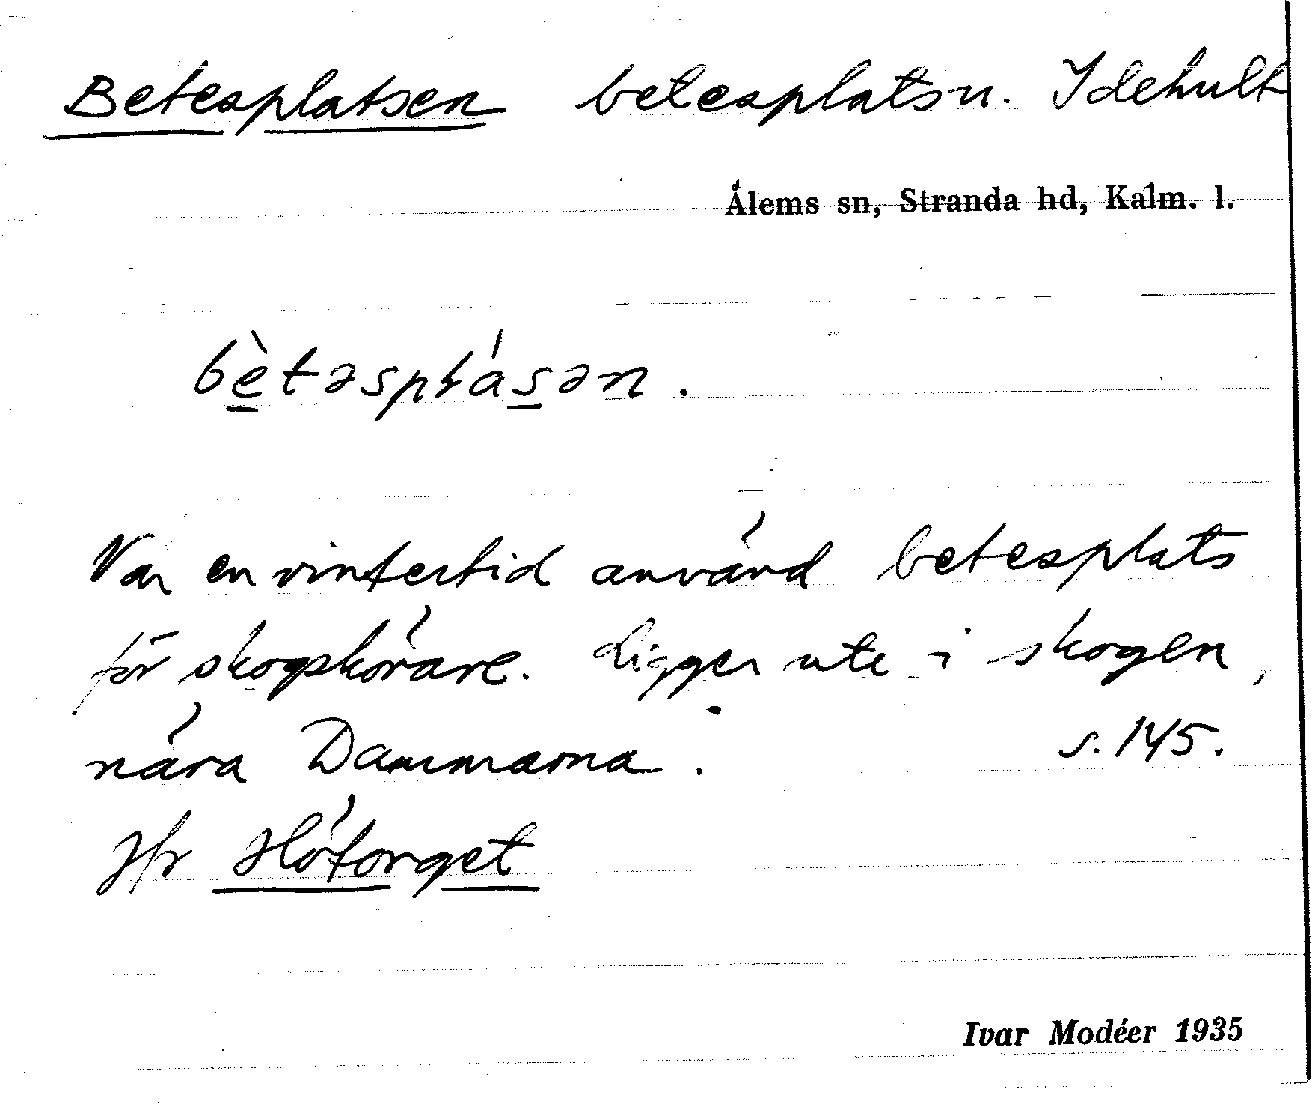 Betesplatsen betesplatsn. Idehult
Ålems sn, Stranda hd, Kalm. l.
bètəspłásən.
Var en vintertid använd betesplats
för skogskörare. Ligger ute i skogen,
nära Dammarna. s. 145.
Jfr Hötorget
Ivar Modéer 1935